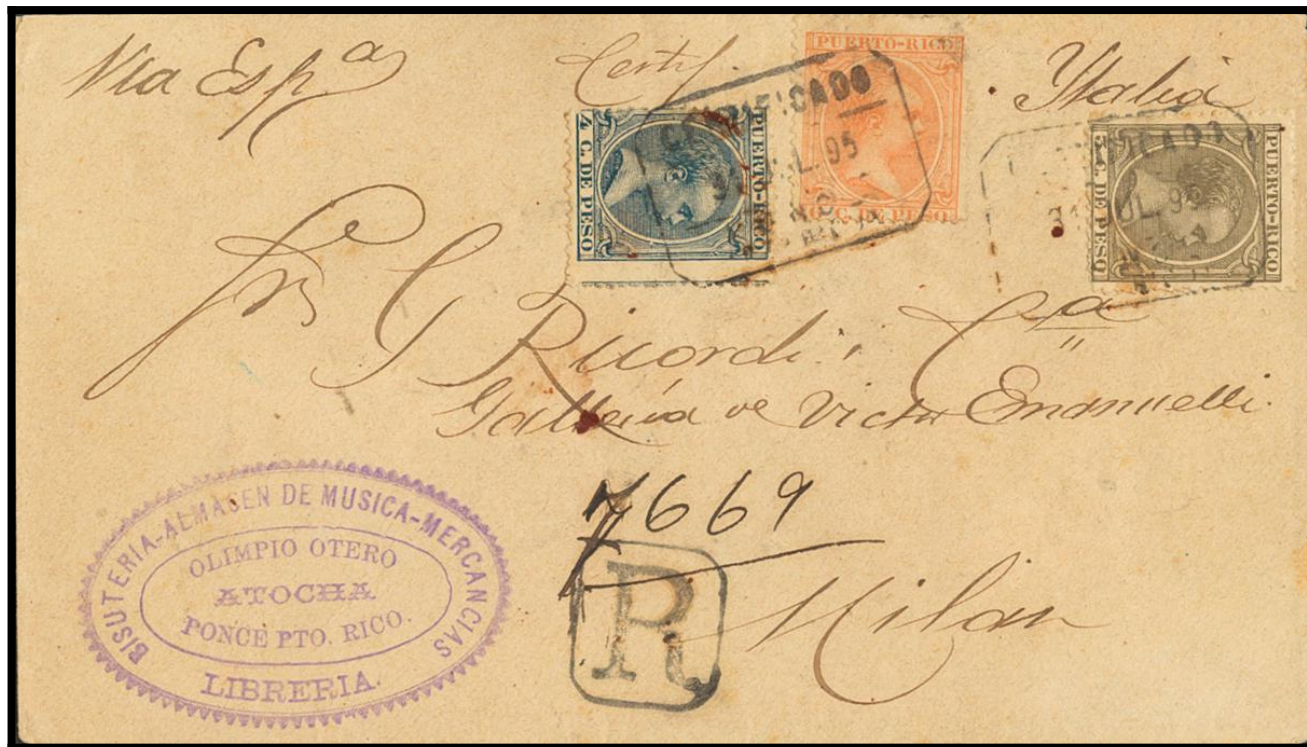 Via Espª
Certf.
Italia
PUERTO-RICO
4 C. DE PESO
CERTIFICADO
95
PUERTO-RICO
C. DE PESO
PUERTO-RICO
C. DE PESO
31 JUL. 9
G Ricordi i Cª
Galleria de Victor Emanuelli.
7669
R
Milan
BISUTERIA-ALMASEN DE MUSICA-MERCANCIAS
OLIMPIO OTERO
ATOCHA
PONCE PTO. RICO.
LIBRERIA.